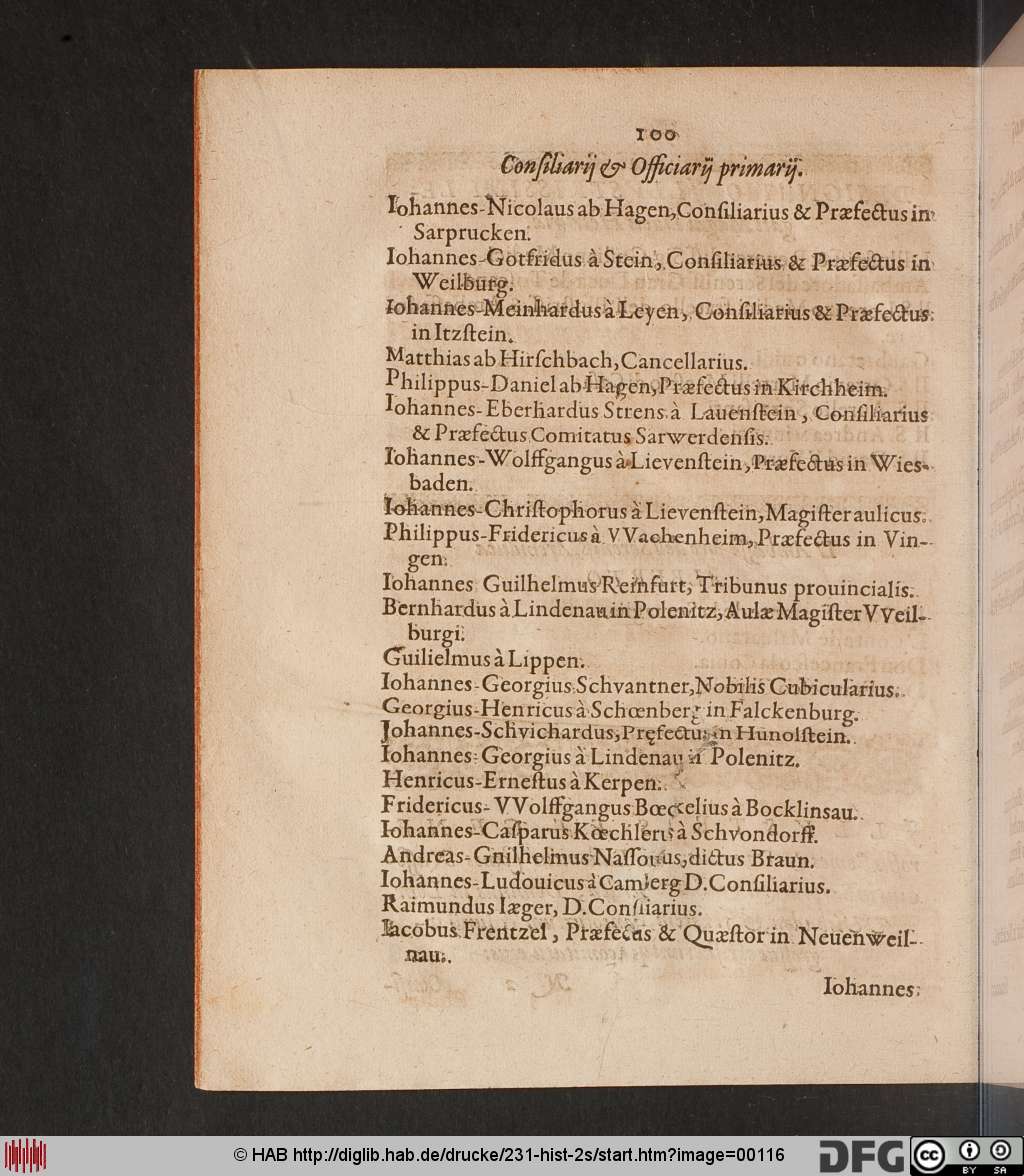 100
Conſiliarij & Officiarij primarij.
Iohannes-Nicolaus ab Hagen, Conſiliarius & Præfectus in
Sarprucken.
Iohannes-Gotfridus à Stein, Conſiliarius & Præfectus in
Weilburg.
Iohannes-Meinhardus à Leyen, Conſiliarius & Præfectus
in Itzſtein.
Matthias ab Hirſchbach, Cancellarius.
Philippus-Daniel ab Hagen, Præfectus in Kirchheim.
Iohannes-Eberhardus Strens à Lauenſtein, Conſiliarius
& Præfectus Comitatus Sarwerdenſis.
Iohannes-Wolffgangus à Lievenſtein, Præfectus in Wies-
baden.
Iohannes-Chriſtophorus à Lievenſtein, Magiſter aulicus.
Philippus-Fridericus à VVachenheim, Præfectus in Vin-
gen.
Iohannes Guilhelmus Reinfurt, Tribunus prouincialis.
Bernhardus à Lindenau in Polenitz, Aulæ Magiſter VVeil-
burgi.
Guilielmus à Lippen.
Iohannes-Georgius Schvantner, Nobilis Cubicularius.
Georgius-Henricus à Schœnberg in Falckenburg.
Johannes-Schvichardus, Pręfectus in Hunolſtein.
Iohannes-Georgius à Lindenau in Polenitz.
Henricus-Erneſtus à Kerpen.
Fridericus-VVolffgangus Bœckelius à Bocklinsau.
Iohannes-Caſparus Kœchlerus à Schvondorff.
Andreas-Gnilhelmus Naſſouus, dictus Braun.
Iohannes-Ludouicus à Camberg D. Conſiliarius.
Raimundus Iæger, D. Conſiliarius.
Iacobus Frentzel, Præfectus & Quæſtor in Neuenweil-
nau.
Iohannes
© HAB http://diglib.hab.de/drucke/231-hist-2s/start.htm?image=00116
DFG
cc BY SA